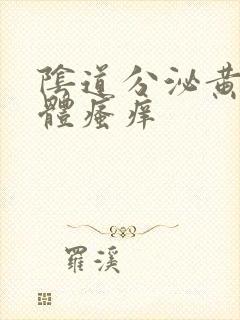 陰道分泌黄
體瘙痒
羅溪